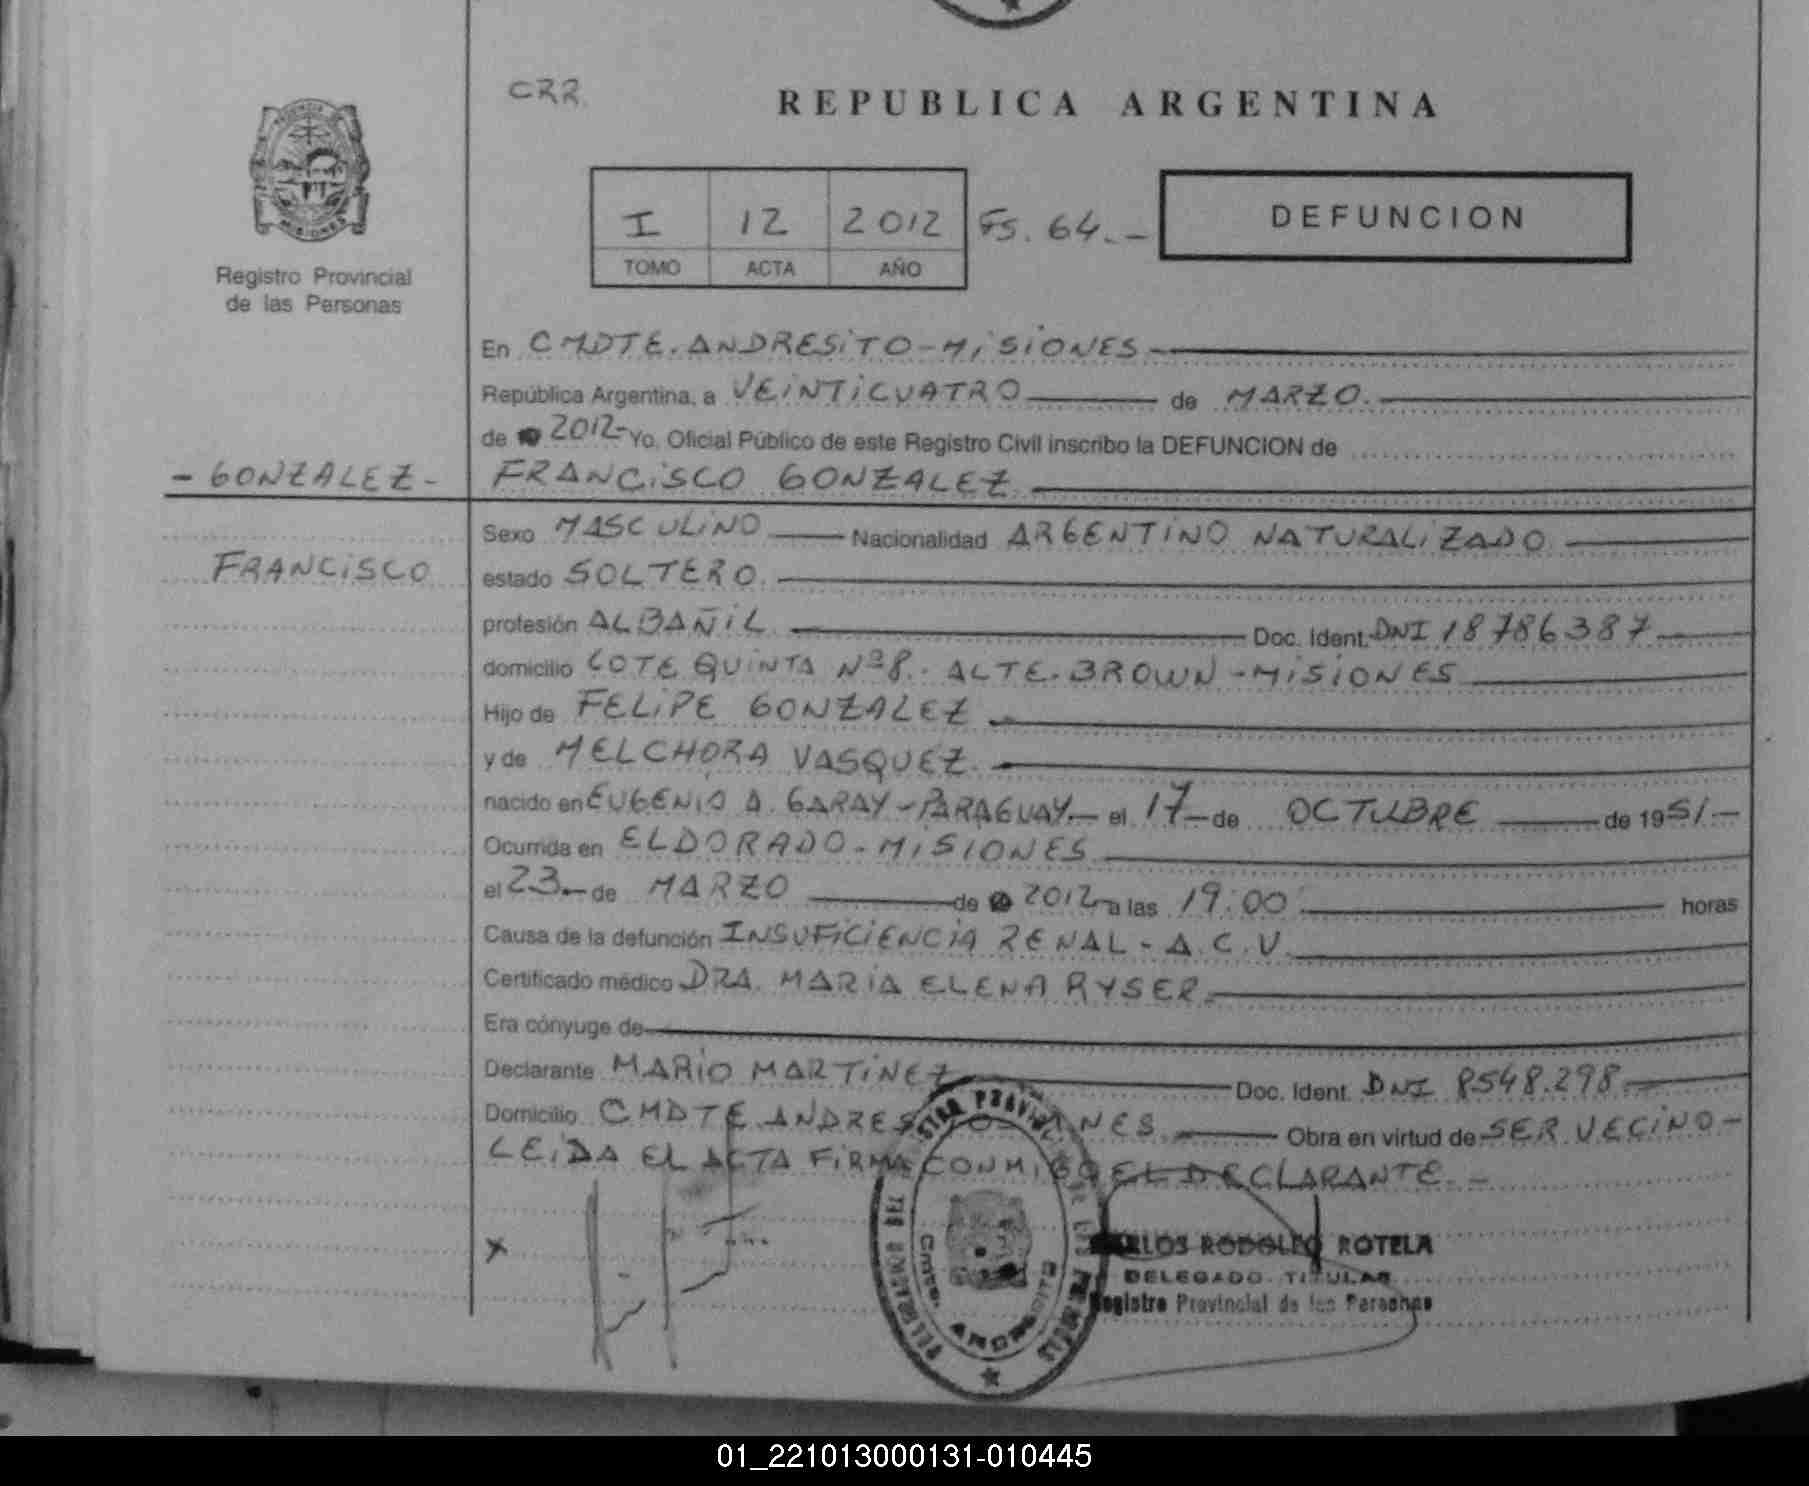 CRR.
REPUBLICA ARGENTINA
MISIONES
Registro Provincial
de las Personas
I 12 2012 Fs. 64.-
TOMO ACTA AÑO
DEFUNCION
En CMDTE. ANDRESITO - MISIONES
República Argentina, a VEINTICUATRO de MARZO.
de 2012- Yo, Oficial Público de este Registro Civil inscribo la DEFUNCION de
- GONZALEZ - FRANCISCO GONZALEZ
FRANCISCO
Sexo MASCULINO Nacionalidad ARGENTINO NATURALIZADO
estado SOLTERO.
profesión ALBAÑIL Doc. Ident. DNI 18786387
domicilio LOTE QUINTA Nº 8. ALTE. BROWN - MISIONES
Hijo de FELIPE GONZALEZ
y de MELCHORA VASQUEZ.
nacido en EUGENIO A. GARAY - PARAGUAY.- el 17 - de OCTUBRE de 1951.-
Ocurrida en ELDORADO - MISIONES
el 23.- de MARZO de 2012 a las 19:00 horas
Causa de la defunción INSUFICIENCIA RENAL - A.C.V.
Certificado médico DRA. MARIA ELENA RYSER.
Era cónyuge de
Declarante MARIO MARTINEZ Doc. Ident. DNI 8548.298
Domicilio CMDTE. ANDRES NES Obra en virtud de SER VECINO -
LEIDA EL ACTA FIRMA CONMIGO EL DECLARANTE. -
x
LOS RODOLFO ROTELA
DELEGADO TITULAR
Registro Provincial de las Personas
ANDRESITO
01_221013000131-010445